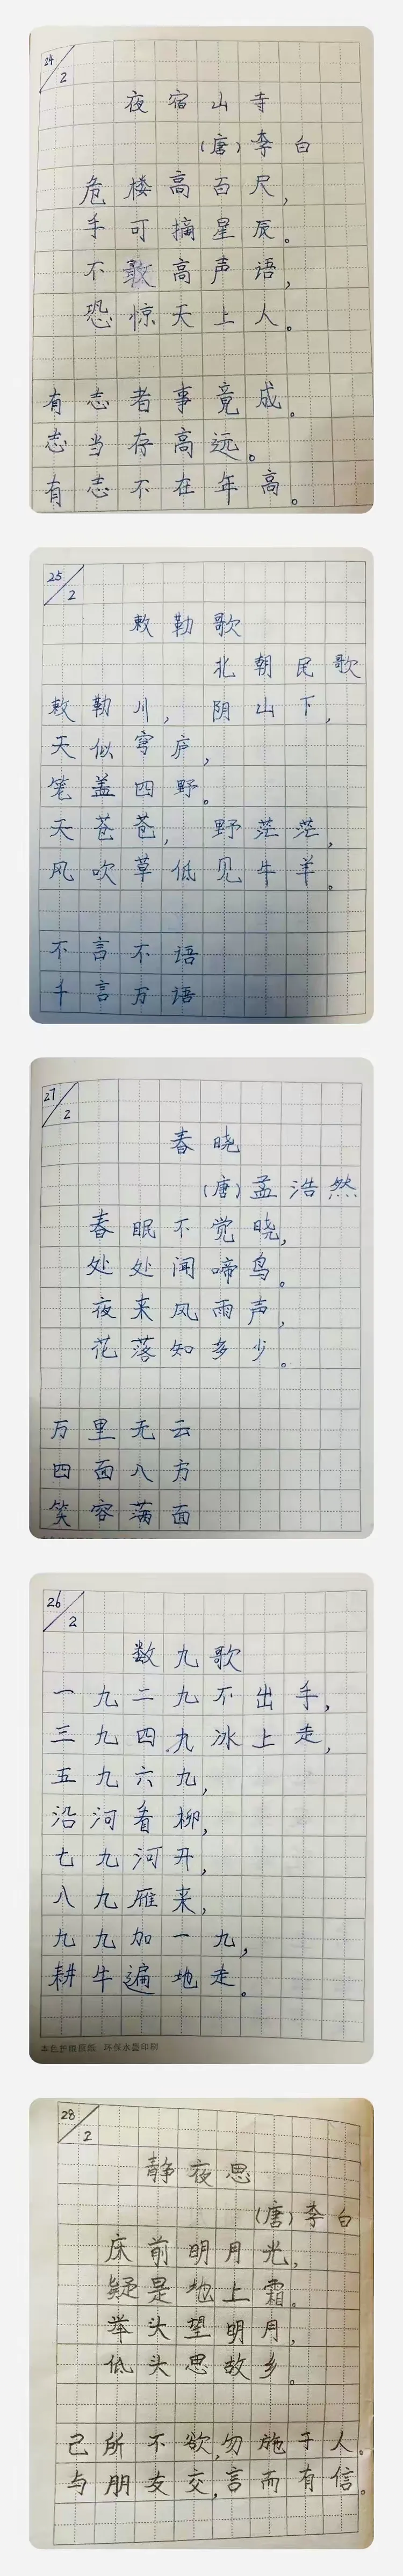 24/2
夜宿山寺
(唐)李白
危楼高百尺,
手可摘星辰。
不敢高声语,
恐惊天上人。
有志者事竟成。
志当存高远。
有志不在年高。
25/2
敕勒歌
北朝民歌
敕勒川,阴山下,
天似穹庐,
笼盖四野。
天苍苍,野茫茫,
风吹草低见牛羊。
不言不语
千言万语
27/2
春晓
(唐)孟浩然
春眠不觉晓,
处处闻啼鸟。
夜来风雨声,
花落知多少。
万里无云
四面八方
笑容满面
26/2
数九歌
一九二九不出手,
三九四九冰上走,
五九六九,
沿河看柳,
七九河开,
八九雁来,
九九加一九,
耕牛遍地走。
本色护眼纸 环保水墨印刷
28/2
静夜思
(唐)李白
床前明月光,
疑是地上霜。
举头望明月,
低头思故乡。
己所不欲,勿施于人。
与朋友交,言而有信。